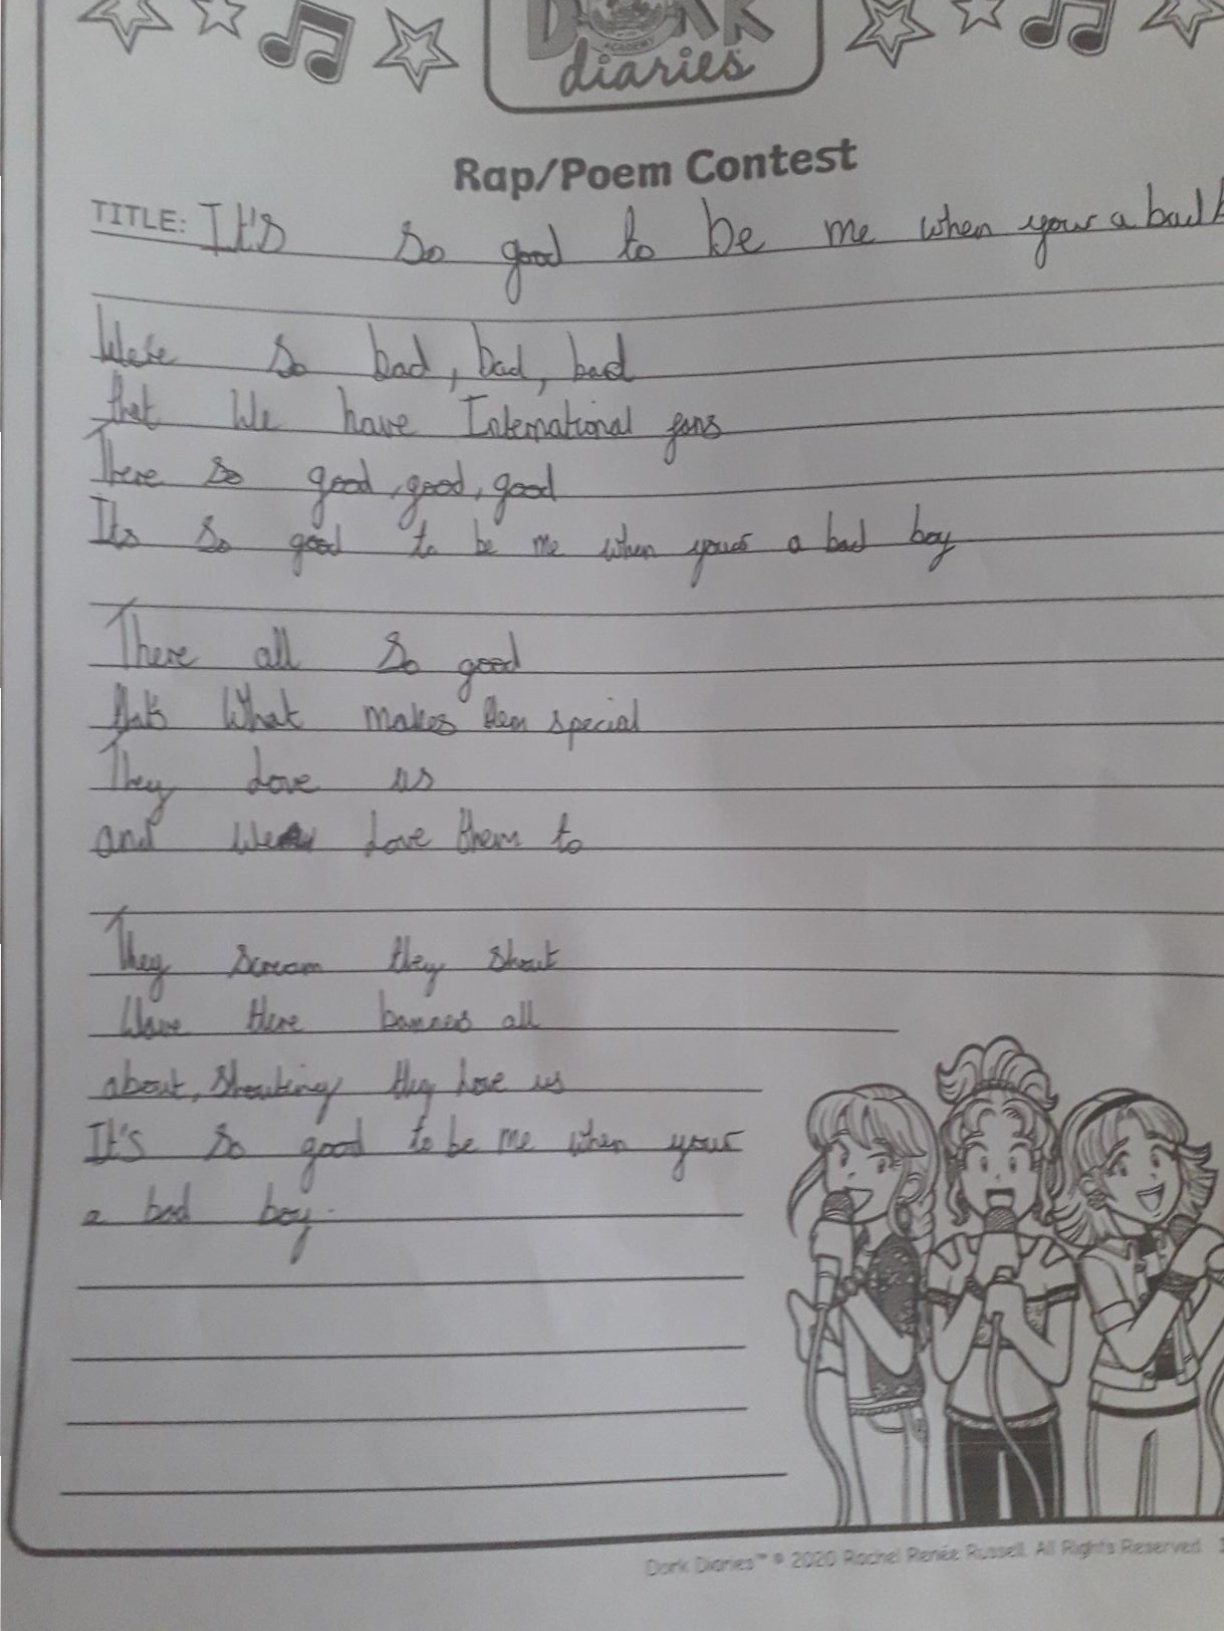 DORK
ACADEMY
diaries
Rap/Poem Contest
TITLE: It's so good to be me when your a bad b
Were so bad, bad, bad
that We have International fans
There so good, good, good
Its so good to be me when your a bad boy
There all so good
that's What makes them special
They Love us
and We Love them to
They scream they shout
Wave there banners all
about, shouting they love us
It's so good to be me when your
a bad boy.
Dork Diaries™ © 2020 Rachel Renée Russell. All Rights Reserved.